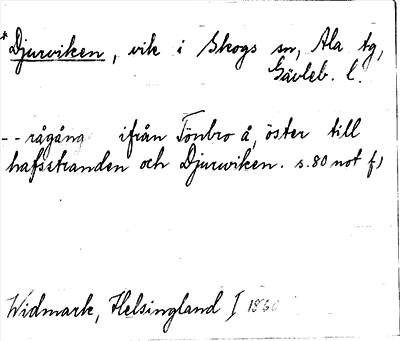 *Djurviken, vik i Skogs sn, Ala tg,
Gävleb. l.
-- rågång ifrån Tönbro å, öster till
hafsstranden och Djurwiken. s. 80 not f)
Widmark, Helsingland I 1860